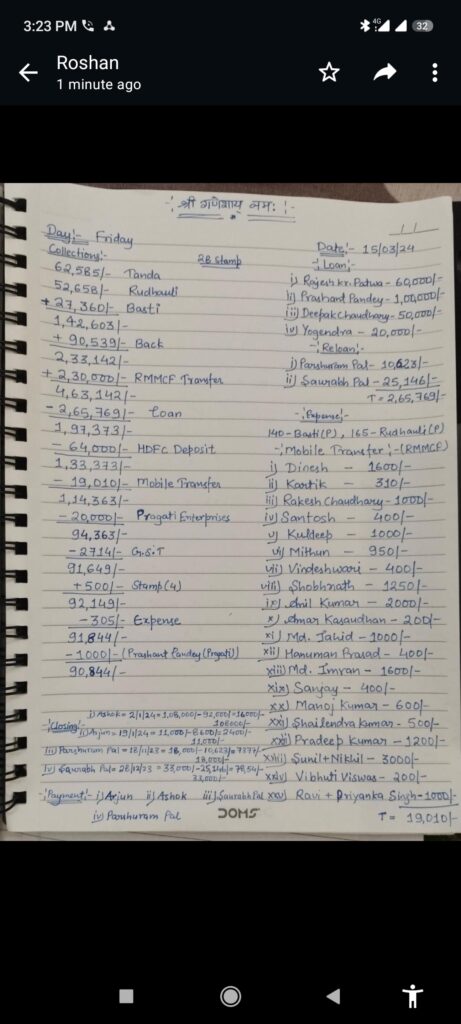 3:23 PM
4G
32
Roshan
1 minute ago
-: श्री गणेशाय नमः :-
Day:- Friday
Date:- 15/03/24
Collections:-
2B Stamp
62,585/- Tanda
52,658/- Rudhauli
+ 27,360/- Basti
1,42,603/-
+ 90,539/- Back
2,33,142/-
+ 2,30,000/- RMMCF Transfer
4,63,142/-
- 2,65,769/- Loan
1,97,373/-
- 64,000/- HDFC Deposit
1,33,373/-
- 19,010/- Mobile Transfer
1,14,363/-
- 20,000/- Pragati Enterprises
94,363/-
- 2714/- G.S.T
91,649/-
+ 500/- Stamp (4)
92,149/-
- 305/- Expense
91,844/-
- 1000/- (Prashant Pandey (Pragati))
90,844/-
-: Loan:-
i) Rajesh kr. Patwa - 60,000/-
ii) Prashant Pandey - 1,00,000/-
iii) Deepak Chaudhary - 50,000/-
iv) Yogendra - 20,000/-
-: Reloan:-
i) Parshuram Pal - 10,623/-
ii) Saurabh Pal - 25,146/-
T = 2,65,769/-
-: Expense:-
140 - Basti (P), 165 - Rudhauli (P)
-: Mobile Transfer:- (RMMCF)
i) Dinesh - 1600/-
ii) Kartik - 310/-
iii) Rakesh Chaudhary - 1000/-
iv) Santosh - 400/-
v) Kuldeep - 1000/-
vi) Mithun - 950/-
vii) Vindeshwari - 400/-
viii) Shobhnath - 1250/-
ix) Anil Kumar - 2000/-
x) Amar Kasaudhan - 200/-
xi) Md. Jahid - 1000/-
xii) Hanuman Prasad - 400/-
xiii) Md. Imran - 1600/-
xix) Sanjay - 400/-
xx) Manoj Kumar - 600/-
xxi) Shailendra Kumar - 500/-
xxii) Pradeep Kumar - 1200/-
xxiii) Sunil + Nikhil - 3000/-
xxiv) Vibhuti Viswas - 200/-
xxv) Ravi + Priyanka Singh - 1000/-
T = 19,010/-
-: Closing:-
i) Ashok = 2/1/24 = 1,08,000/- - 92,000/- = 16000/-
108000/-
ii) Arjun = 19/1/24 = 11,000/- - 8600/- = 2400/-
11,000/-
iii) Parshuram Pal = 18/11/23 = 18,000/- - 10,623/- = 7377/-
18,000/-
iv) Saurabh Pal = 28/12/23 = 33,000/- - 25,146/- = 7854/-
33,000/-
-: Payment:- i) Arjun ii) Ashok iii) Saurabh Pal
iv) Parshuram Pal
DOMS